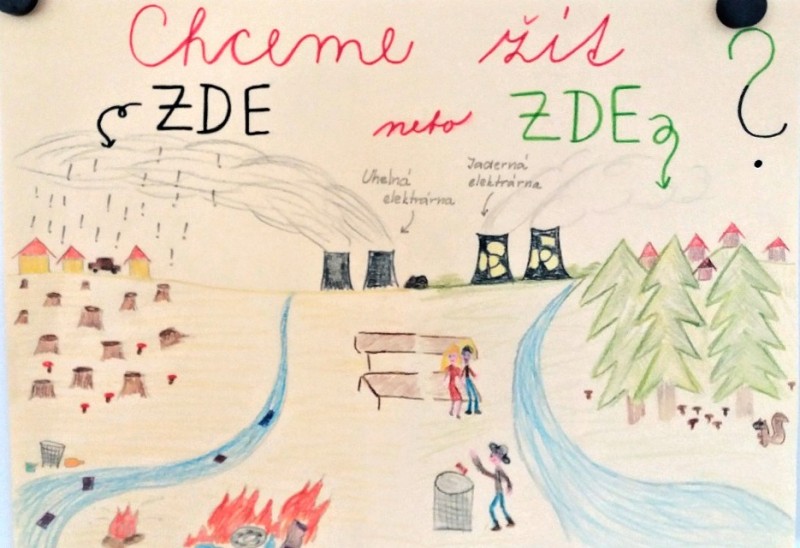 Chceme žít
ZDE nebo ZDE ?
Uhelná
elektrárna
Jaderná
elektrárna